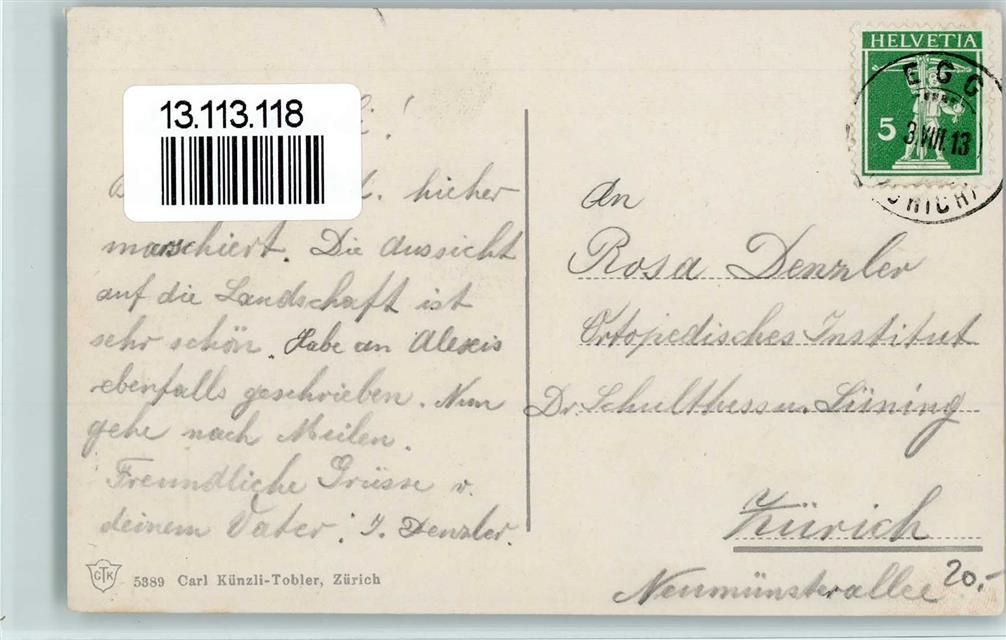 13.113.118
hieher
marschiert. Die Aussicht
auf die Landschaft ist
sehr schön. Habe an Alexis
ebenfalls geschrieben. Nun
gehe nach Meilen.
Freundliche Grüsse v.
deinem Vater: J. Denzler.
GTK
5389 Carl Künzli-Tobler, Zürich
HELVETIA
5
EGG
3.VIII.13
An
Rosa Denzler
Ortopedisches Institut
Dr. Schulthess u. Lüning
Zürich
Neumünsterallee
20.-